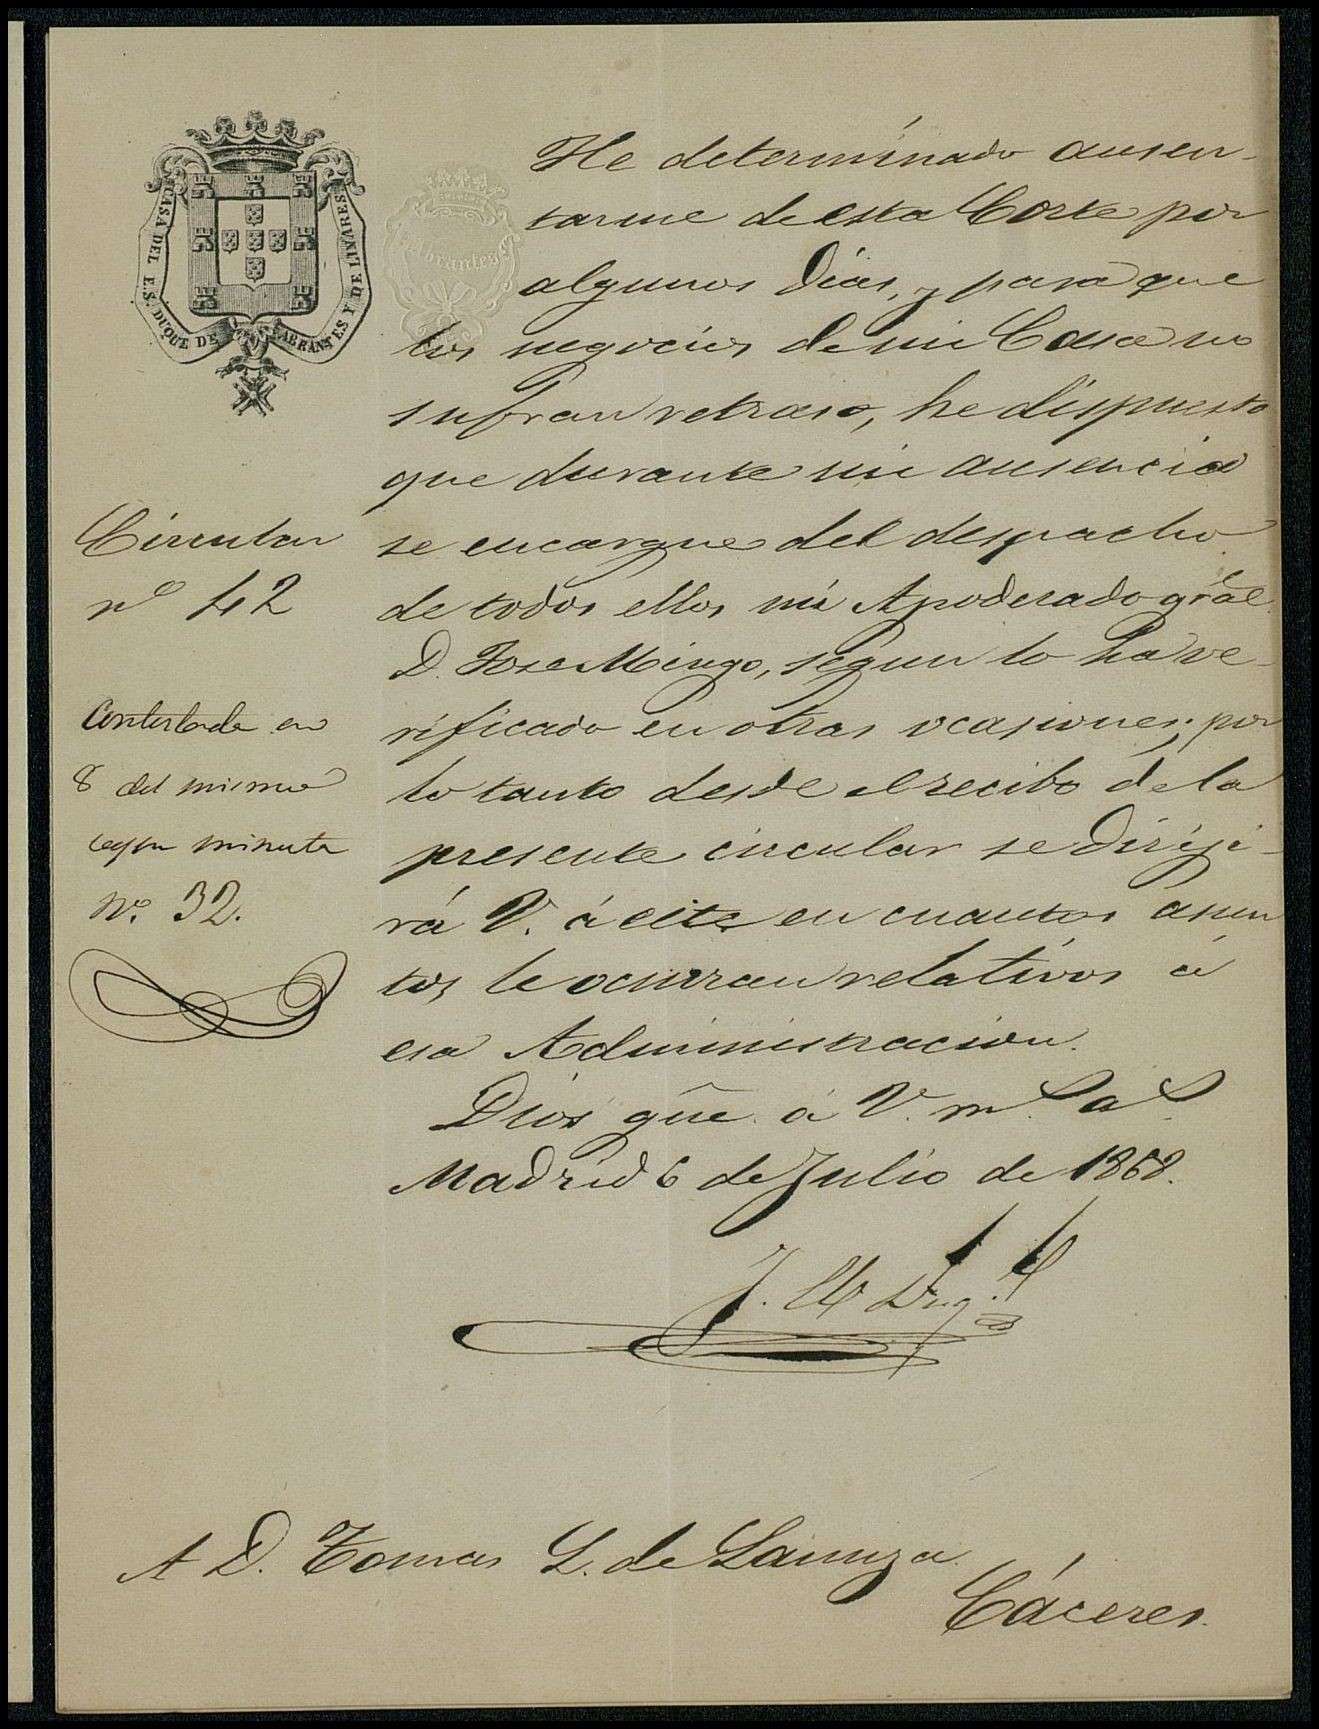 CASA DEL E.S. DUQUE DE ABRANTES Y DE LINARES
He determinado ausen-
tarme de esta Corte por
algunos dias, y para que
los negocios de mi Casa no
sufran retraso, he dispuesto
que durante mi ausencia
se encargue del despacho
de todos ellos mi Apoderado gral.
D. Jose Mingo, segun lo ha ve-
rificado en otras ocasiones; por
lo tanto desde el recibo de la
presente circular se diriji-
rá V. á este en cuantos asun
tos le ocurran relativos á
esa Administracion.
Dios güe. á V. m.s a.s
Madrid 6 de Julio de 1868.
Circular
nº 42
Contestada en
8 del mismo
segun minuta
Nº. 32.
A D. Tomas L. de Lanuza
Cáceres.